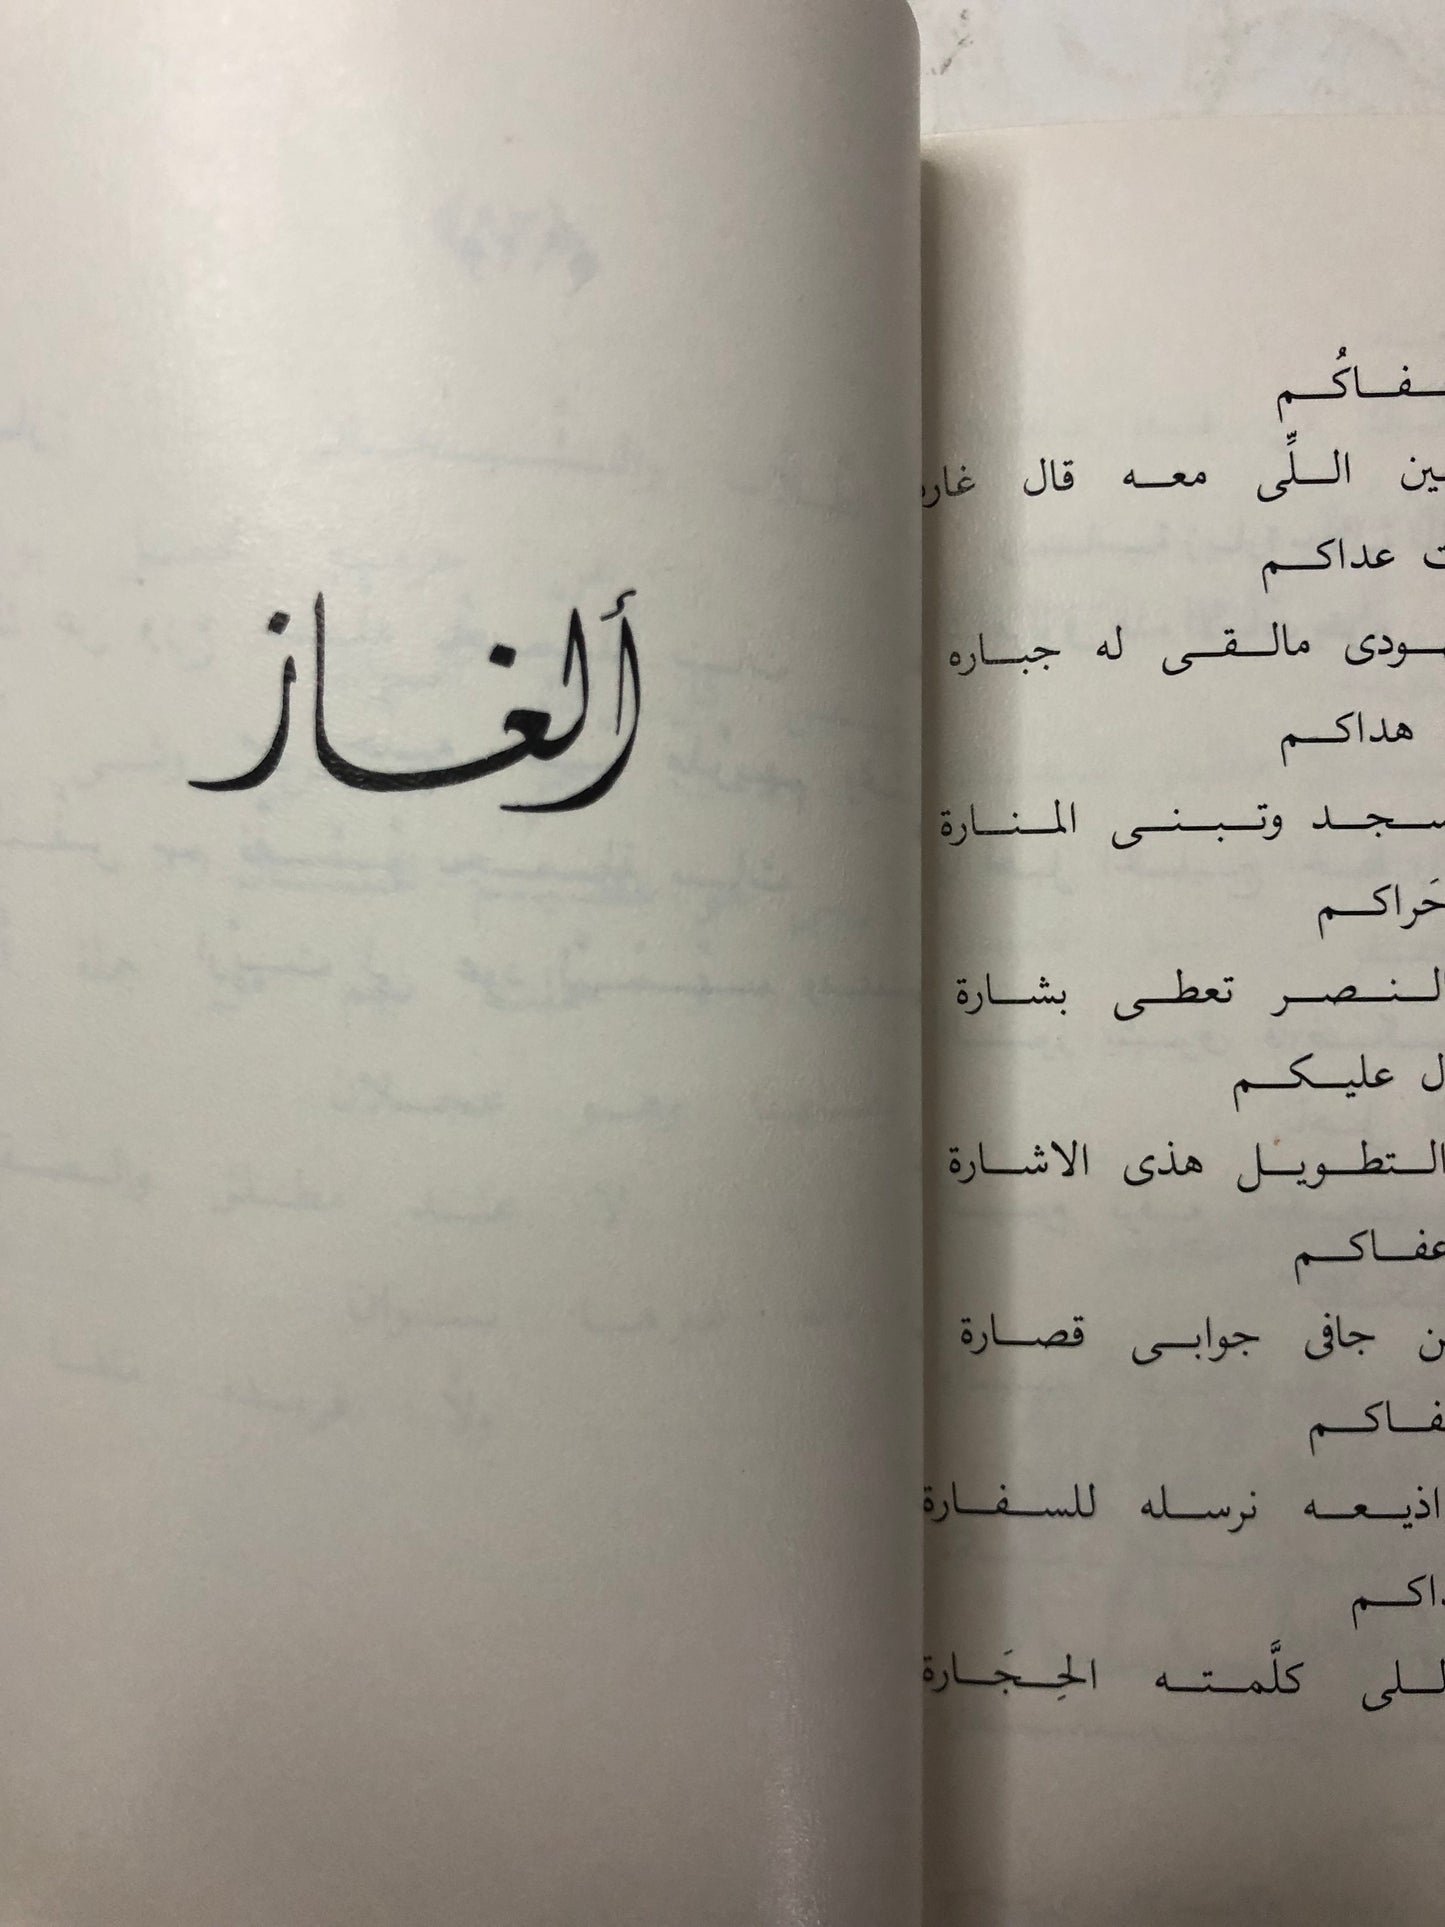 ين اللِّى معه قال غاره
عداكم
مالقى له جباره
هداكم
وتبنى المنارة
حَراكم
النصر تعطى بشارة
عليكم
التطويل هذى الاشارة
عفاكم
جافى جوابى قصارة
اذيعه نرسله للسفارة
اللى كلَّمته الحِجَارة
ألغاز